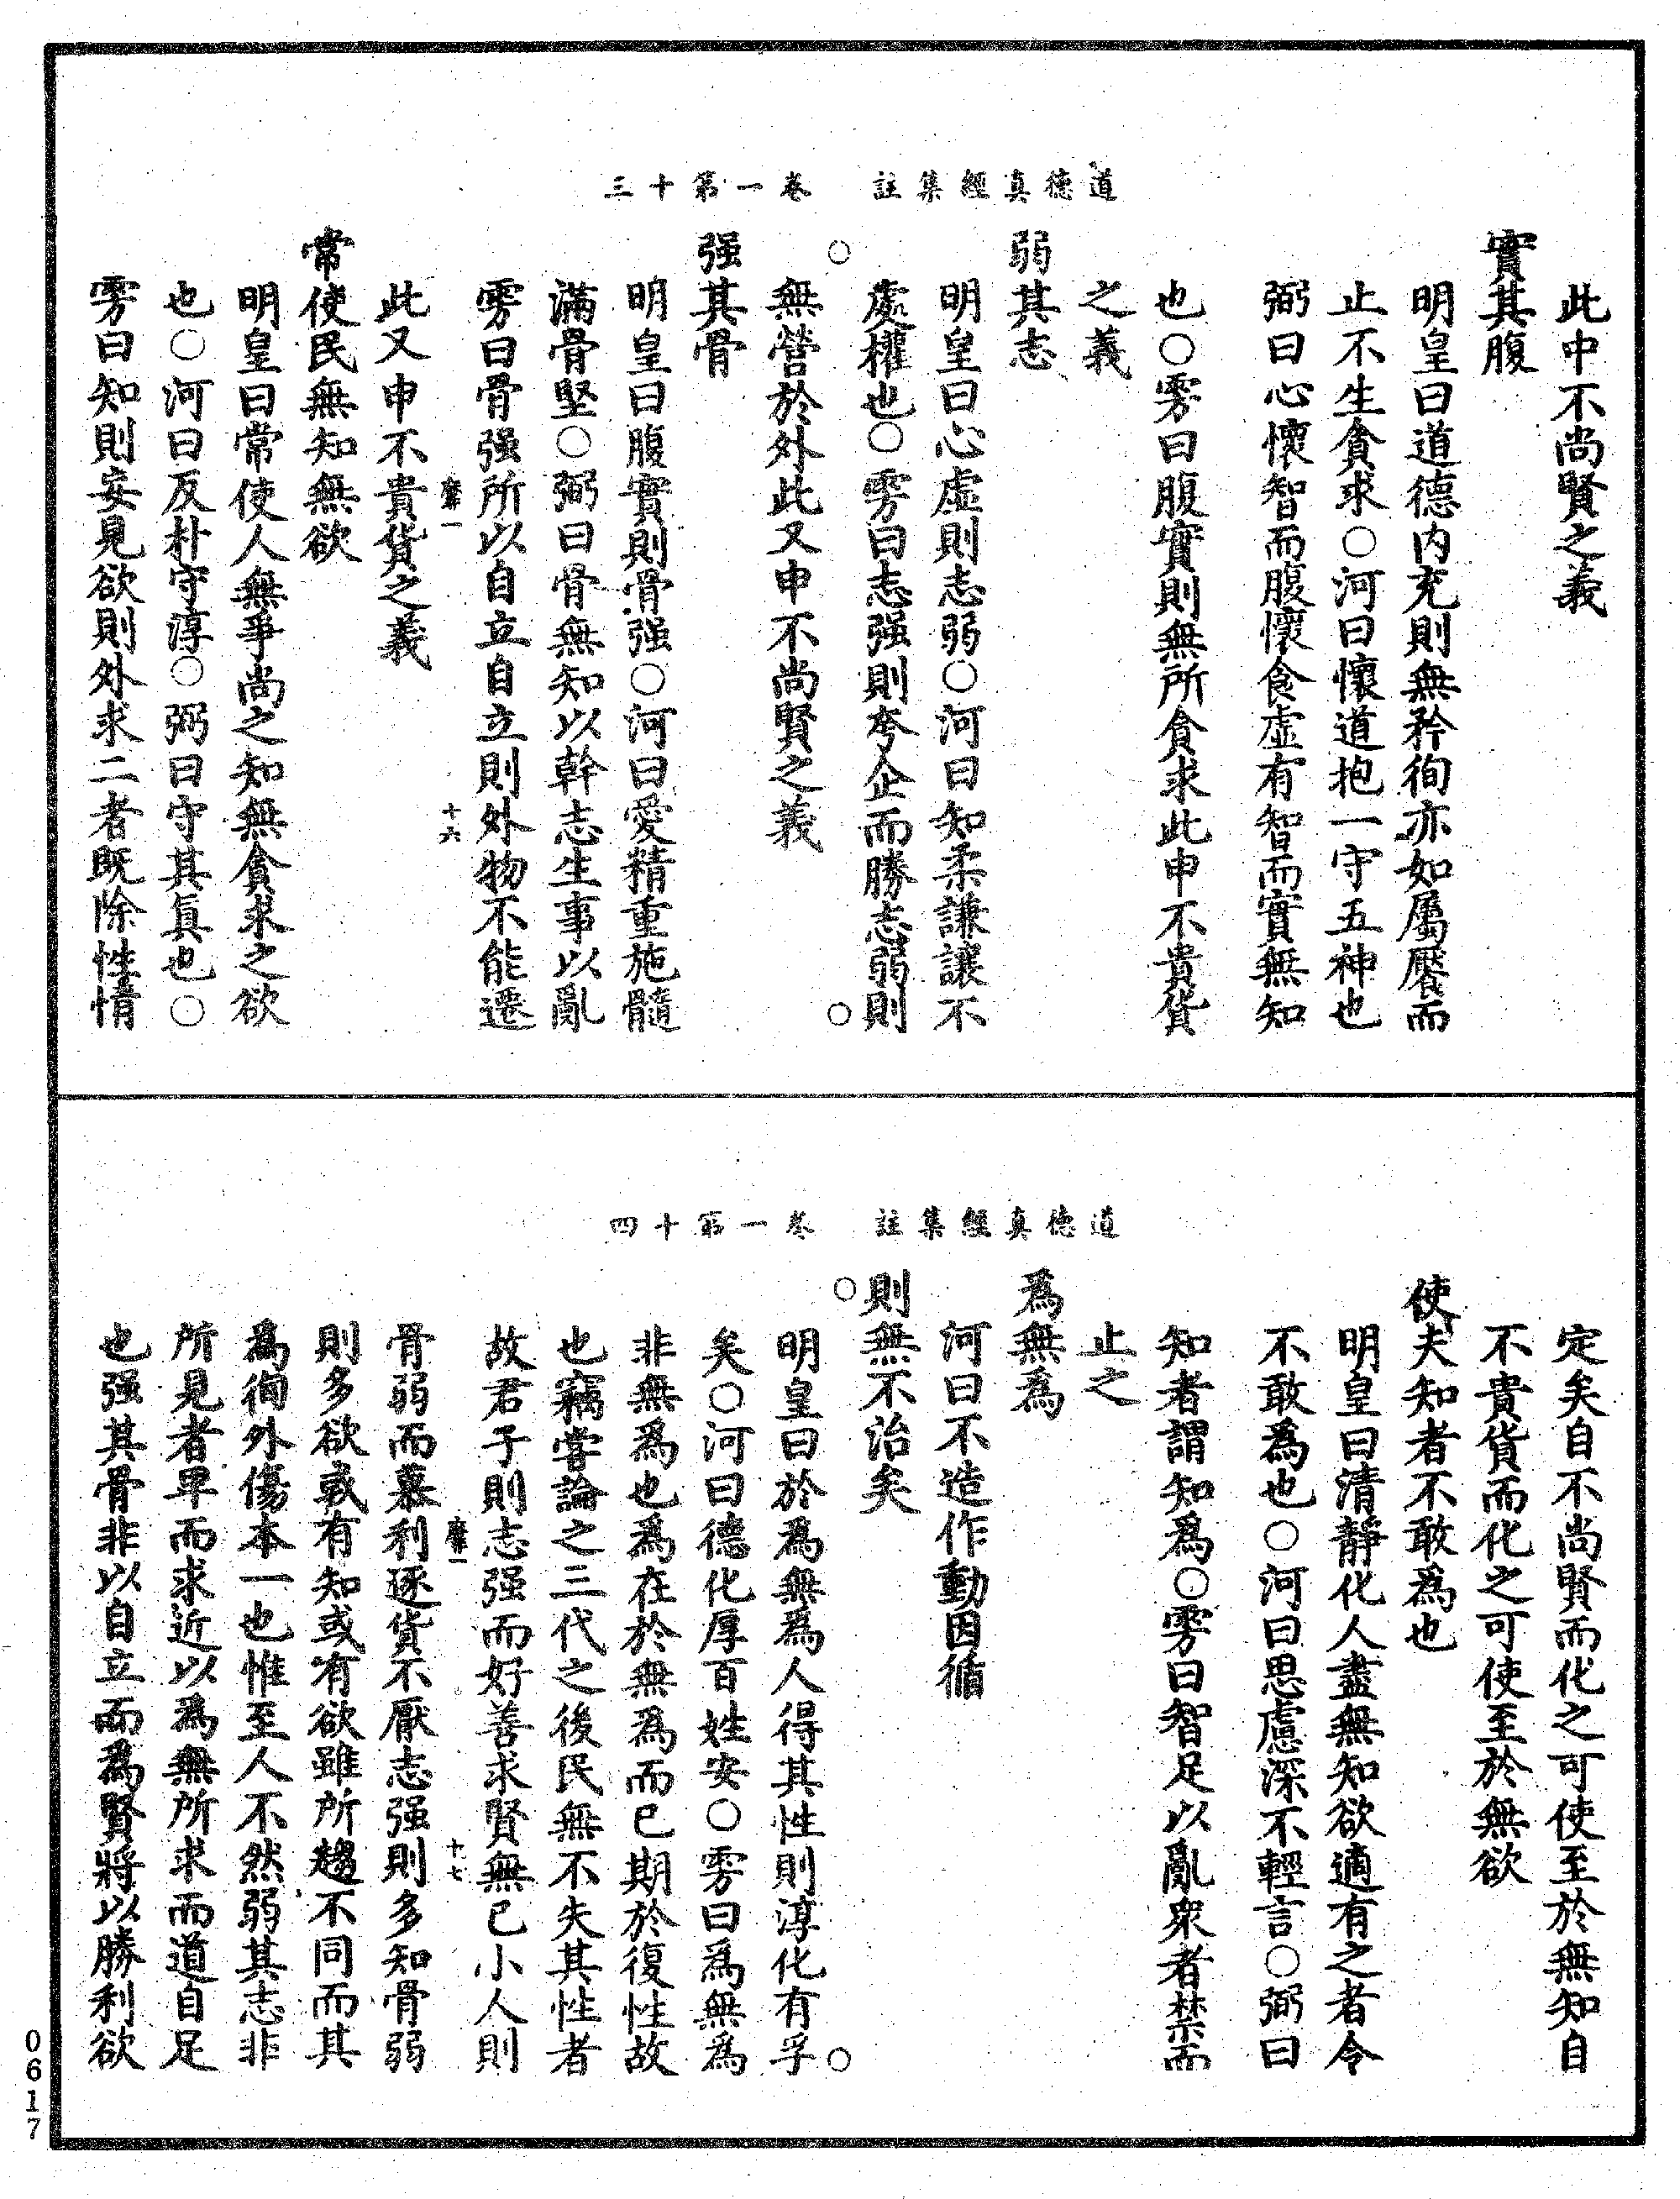 道德真經集註　卷一第十三
此申不尚賢之義
實其腹
明皇曰道德内充則無矜徇亦如屬饜而
止不生貪求○河曰懷道抱一守五神也
弼曰心懷智而腹懷食虛有智而實無知
也○雱曰腹實則無所貪求此申不貴貨
之義
弱其志
明皇曰心虛則志弱○河曰知柔謙讓不
處權也○雱曰志强則夸企而勝志弱則
無營於外此又申不尚賢之義
强其骨
明皇曰腹實則骨强○河曰愛精重施髓
滿骨堅○弼曰骨無知以幹志生事以亂
雱曰骨强所以自立自立則外物不能遷
十六
此又申不貴貨之義
常使民無知無欲
明皇曰常使人無爭尚之知無貪求之欲
也○河曰反朴守淳○弼曰守其眞也○
雱曰知則妄見欲則外求二者既除性情
道德真經集註　卷一第十四
定矣自不尚賢而化之可使至於無知自
不貴貨而化之可使至於無欲
使夫知者不敢爲也
明皇曰清靜化人盡無知欲適有之者令
不敢爲也○河曰思慮深不輕言○弼曰
知者謂知爲○雱曰智足以亂衆者禁而
止之
爲無爲
河曰不造作動因循
則無不治矣
明皇曰於爲無爲人得其性則淳化有孚
矣○河曰德化厚百姓安○雱曰爲無爲
非無爲也爲在於無爲而已期於復性故
也竊嘗論之三代之後民無不失其性者
故君子則志强而好善求賢無已小人則
十七
骨弱而慕利逐貨不厭志强則多知骨弱
則多欲或有知或有欲雖所趨不同而其
爲徇外傷本一也惟至人不然弱其志非
所見者卑而求近以爲無所求而道自足
也强其骨非以自立而爲賢將以勝利欲
0617